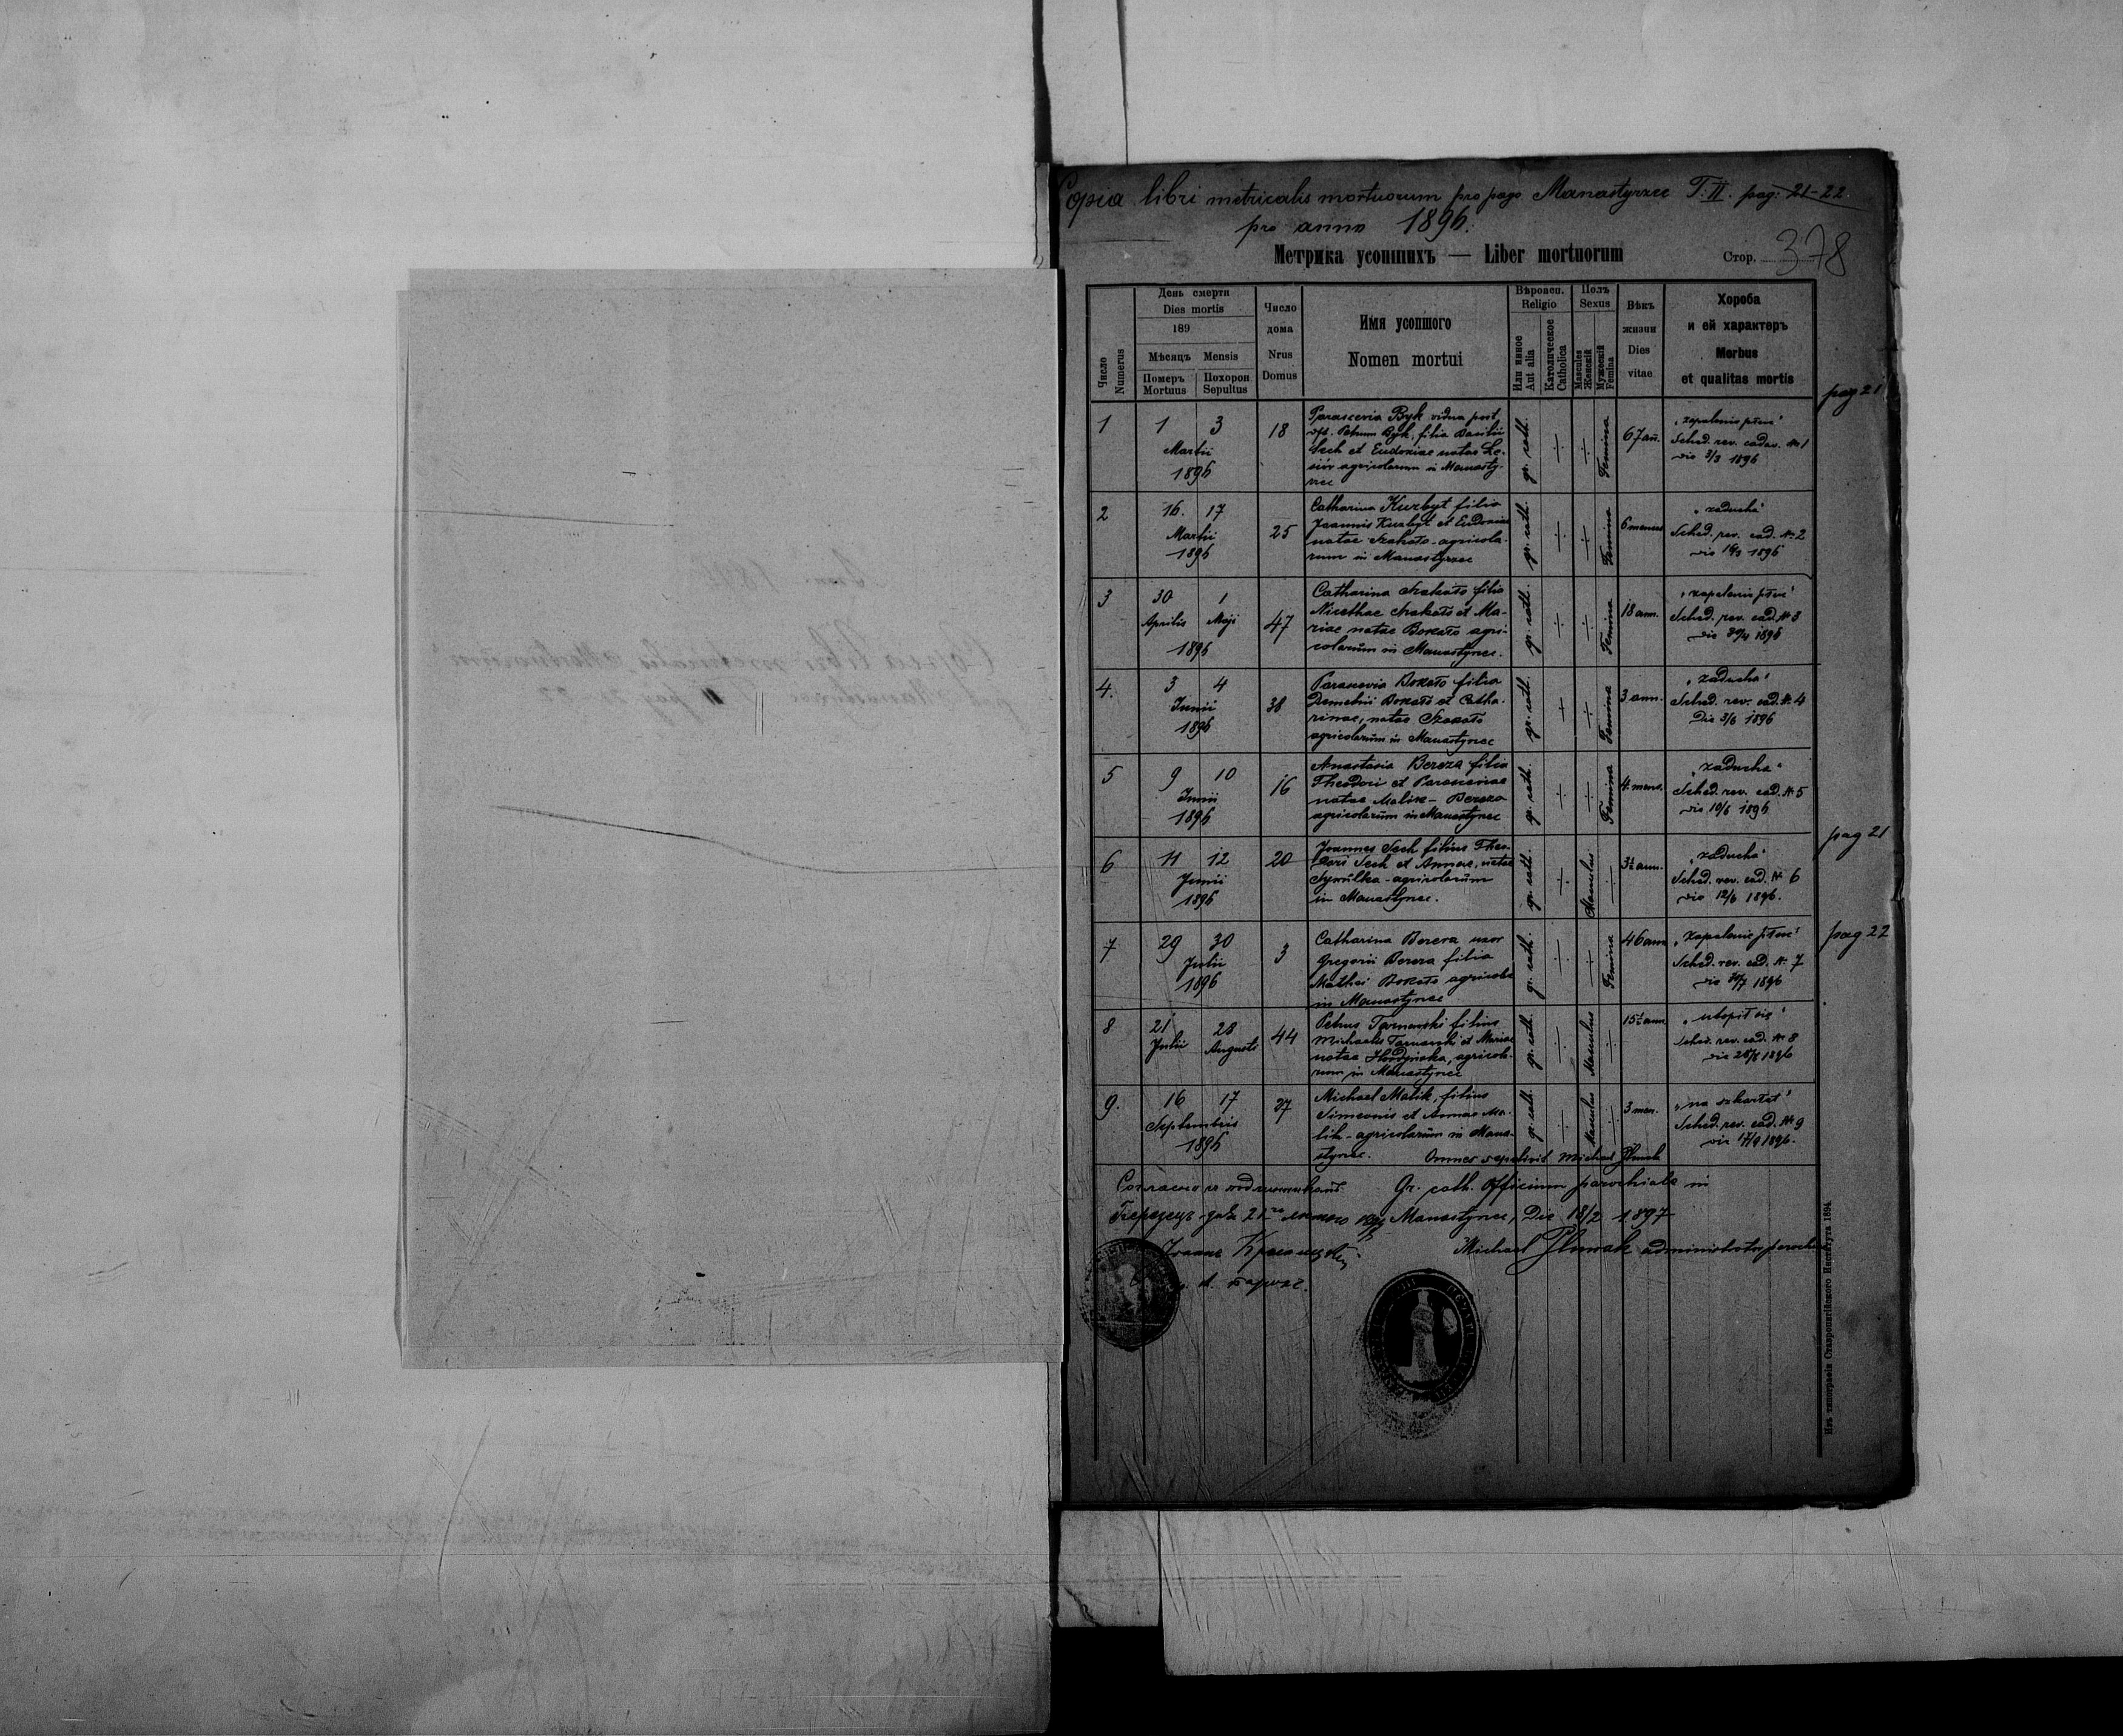 Copia libri metricalis mortuorum pro pago Manastyrzec T. II. pag: 21-22
pro anno 1896.
Метрика усопшихъ — Liber mortuorum
Стор. 378
Число
Numerus
День смерти
Dies mortis
189
Мѣсяцъ Mensis
Померъ Похорон
Mortuus Sepultus
Число
дома
Nrus
Domus
Имя усопшого
Nomen mortui
Вѣроисп.
Religio
Или иное
Aut alia
Католическое
Catholica
Полъ
Sexus
Mascules
Женскій
Мужескій
Femina
Вѣкъ
жизни
Dies
vitae
Хороба
и ей характеръ
Morbus
et qualitas mortis
pag 21
1
1 3
Martii
1896
18
Parascevia Byk vidua post
def. Petrum Byk, filia Basilii
Sech et Eudoxiae natae
agricolarum in Manasty-
rzec
gr. cath.
Femina
67 an.
„zapalenie płuc"
Sched. rev. cadav. № 1
die 3/3 1896
2
16. 17
Martii
1896
25
Catharina Kuzbyt filia
Joannis Kuzbyt et Eudoxiae
natae Szakało - agricola-
rum in Manastyrzec
gr. cath.
Femina
6 menses
„zaducha"
Sched. rev. cad. № 2
die 16/3 1896
3
30 1
Aprilis Maji
1896
47
Catharina Szakało filia
Nicethae Szakało et Ma-
riae natae Bokało agri-
colarum in Manastyrzec.
gr. cath.
Femina
18 ann.
„zapalenie płuc"
Sched. rev. cad. № 3
die 30/4 1896
4.
3 4
Junii
1896
38
Parascevia Bokało filia
Demetrii Bokało et Catha-
rinae, natae Szakało
agricolarum in Manastyrzec
gr. cath.
Femina
3 ann.
„zaducha"
Sched. rev. cad. № 4
Die 3/6 1896
5
9 10
Junii
1896
16
Anastasia Bereza filia
Theodori et Parasceviae
natae Malik - Bereza
agricolarum in Manastyrzec
gr. cath.
Femina
4. mens.
„zaducha"
Sched. rev. cad. № 5
die 10/6 1896
pag 21
6
11 12
Junii
1896
20
Joannes Sech filius Theo-
dori Sech et Annae, natae
agricolarum
in Manastyrzec.
gr. cath.
Masculus
3½ ann.
„zaducha"
Sched. rev. cad. № 6
die 12/6 1896.
pag 22
7
29 30
Julii
1896
3
Catharina Bereza uxor
Gregorii Bereza filia
Mathei Bokało agricola
in Manastyrzec
gr. cath.
Femina
46 ann
„Zapalenie płuc"
Sched. rev. cad. № 7
die 30/7 1896
8
21 28
Julii Augusti
44
Petrus Tarnawski filius
Michaelis Tarnawski et Mariae
natae Hordyńska, agricola-
rum in Manastyrzec
gr. cath.
Masculus
15½ ann.
„utopił się"
Sched. rev. cad. № 8
die 28/8 1896
9.
16 17
Septembris
1896
37
Michael Malik, filius
Simeonis et Annae Ma-
lik - agricolarum in Mana-
styrzec.
gr. cath.
Masculus
3 men.
„na szkarlat"
Sched. rev. cad. № 9
die 17/9 1896.
Omnes sepelivit Michael
Gr. cath. Officium parochiale in
Manastyrzec, Die 18/2 1897
Michael administrator parochiae
Изъ типографіи Ставропигійского Института 1894.